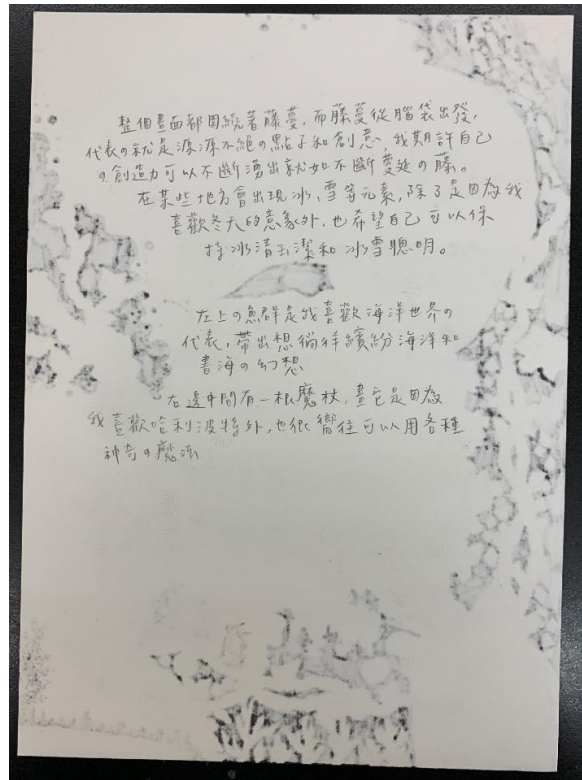 整個畫面都圍繞著藤蔓，而藤蔓從腦袋出發，
代表の就是源源不絕の點子和創意，我期許自己
の創造力可以不斷湧出就如不斷蔓延の藤。
在某些地方會出現冰、雪等元素，除了是因為我
喜歡冬天的意象外，也希望自己可以保
持冰清玉潔和冰雪聰明。
左上の魚群是我喜歡海洋世界の
代表，帶出想徜徉繽紛海洋和
書海の幻想
右邊中間有一根魔杖，畫它是因為
我喜歡哈利波特外，也很嚮往可以用各種
神奇の魔法